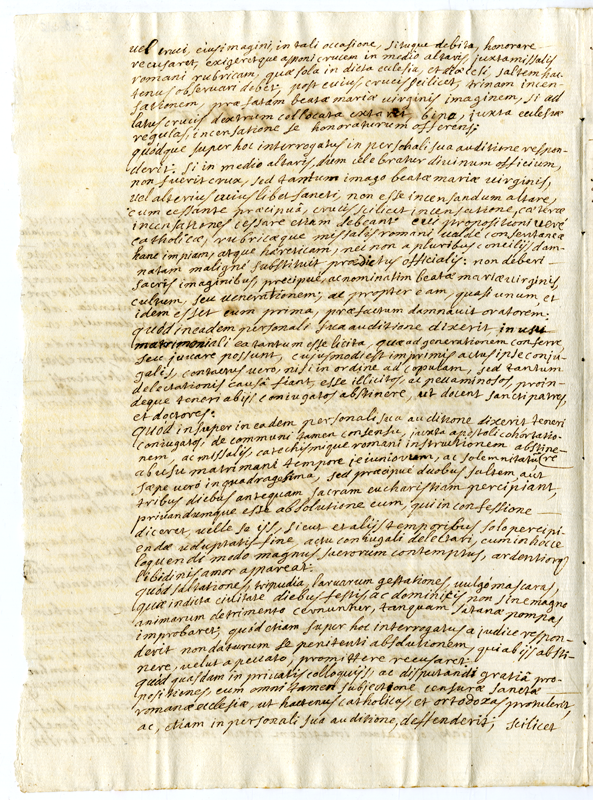 vel cruci, eius imagini, in tali occasione, situque debita, honorare
recusaret, exigeretque apponi crucem in medio altaris, juxta missalis
romani rubricam, quæ sola in dicta eclesia, et diœcesi, saltem hac-
tenus observari debet, post cuius crucis scilicet, trinam incen-
sationem, præfatam beatæ mariæ virginis imaginem, si ad
latus crucis dextrum collocata extaret bina, juxta eclesiæ
regulas, incensatione se honoraturum offerens;
quodque super hoc interrogatus in personali sua auditione respon-
derit: si in medio altaris, dum celebratur divinum officium,
non fuerit crux, sed tantum imago beatæ mariæ virginis,
vel alterius cuius libet sancti, non esse incensandum altare,
cum cessante præcipua, crucis scilicet incensatione, cæteræ
incensationes cessare etiam debeant: cui propositioni veré
catholicæ, rubricæque missalis romani valde consentaneæ
hanc impiam, atque hæreticam, nec non a pluribus conciliis dam-
natam maligné substituit prædictus officialis: non deberi
sacris imaginibus, præcipué, ac nominatim beatæ mariæ virginis
cultum, seu venerationem; ac propter eam, quasi unum, et
idem esset cum prima, præfactum damnavit oratorem:
quod in eadem personali sua auditione dixerit, in usu
matrimoniali ea tantum esse licita, quæ ad generationem conferre,
seu juvare possunt, cujusmodi est imprimis actus ipse conju-
galis, contactus vero, nisi in ordine ad copulam, sed tantum
delectationis causâ fiant, esse illicitos ac peccaminosos, proin-
deque teneri ab iis conjugatos abstinere, ut docent sancti patres,
et doctores:
quod insuper in eadem personali sua auditione dixerit teneri
conjugatos, de communi tamen consensu, juxta apostoli cohortatio-
nem, ac missalis, catechismique romani instructionem abstine-
re
abusu matrimoni tempore jejuniorum, ac solemnitatum
sæpe vero in quadragesima, sed præcipue duobus saltem aut
tribus diebus antequam sacram eucharistiam percipiant,
privandumque esse absolutione eum, qui in confessione
diceret, velle se iis, sicut et aliis temporibus solo percipi-
endæ voluptatis fine, actu conjugali delectari, cum in hocce
loquendi modo magnus sacrorum contemptus, ardentiorq
libidinis amor appareat:
quod saltationes, tripudia, larvarum gestationes, vulgo mascaras,
quæ in dicta civitate diebus festis, ac dominicis non sine magno
animarum detrimento cernuntur, tanquam satanæ pompas
improbaret; quod etiam super hoc interrogatus a judice respon-
derit non daturum se penitenti absolutionem, qui ab iis absti-
nere, velut a peccato, promittere recusaret:
quod quasdam in privatis colloquiis, ac disputandi gratiâ pro-
positiones, cum omni tamen subjectione censuræ sanctæ
romanæ ecclesiæ, ut hactenus catholicas, et ortodoxas protulerit,
ac, etiam in personali sua auditione, deffenderit; scilicet